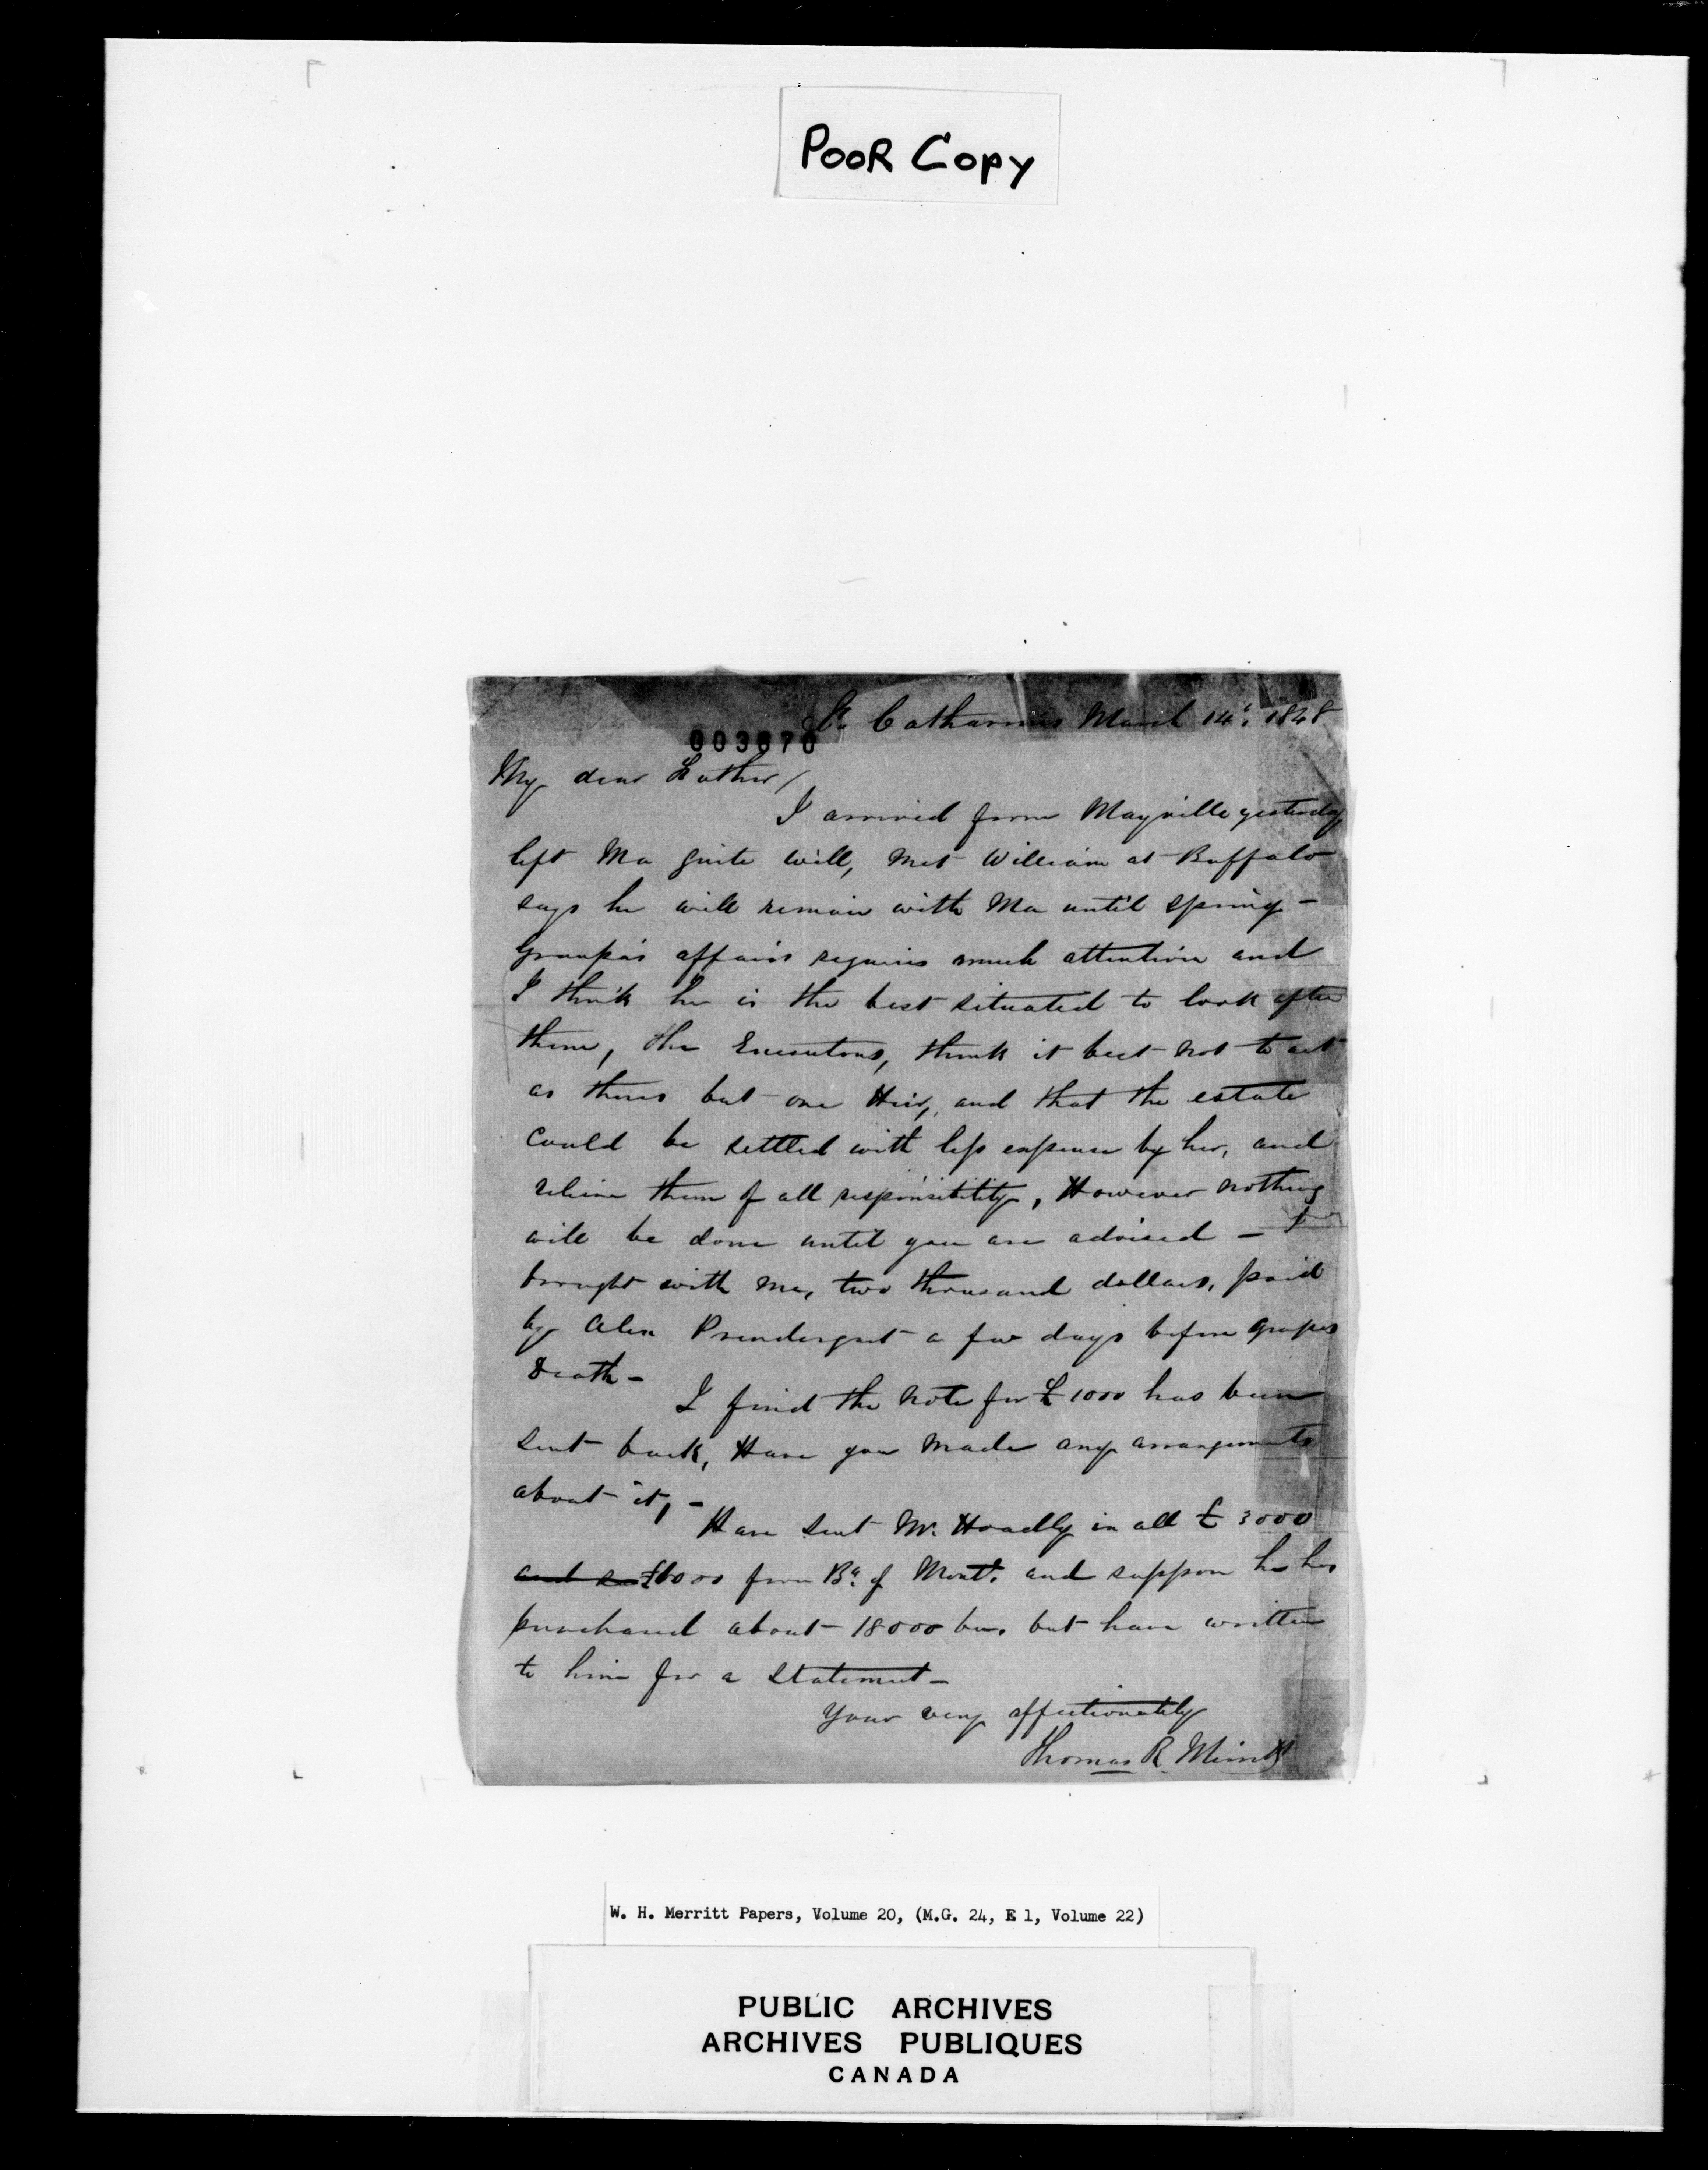 POOR COPY
St. Catharines March 14th. 1848
003670
My dear Father/
I arrived from Mayville yesterday
left Ma quite well, met William at Buffalo
says he will remain with Ma until spring -
Granpa's affairs requires much attention and
I think he is the best situated to look after
them, the Executors, think it best not to act
as theres but one Heir, and that the estate
could be settled with less expense by her, and
relieve them of all responsibility, However nothing
will be done until you are advised - I
brought with me, two thousand dollars, paid
by Alex Prendergast a few days before Granpas
Death -
I find the note for £1000 has been
sent back, Have you made any arrangements
about it, -
Have sent Mr. Hoadly in all £3000
and £6000 from Bk. of Mont. and suppose he has
purchased about 18000 bu. but have written
to him for a statement -
Your very affectionately
Thomas R. Merritt
W. H. Merritt Papers, Volume 20, (M.G. 24, E 1, Volume 22)
PUBLIC ARCHIVES
ARCHIVES PUBLIQUES
CANADA